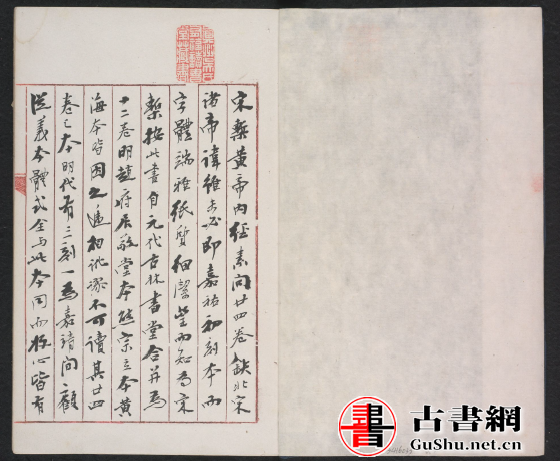 宋槧黃帝內經素問廿四卷缺北宋
諸帝諱維未必即嘉祐初刻本而
字體端雅紙質細潔望而知為宋
槧按此書自元代古林書堂合并為
十二卷明趙府居敬堂本熊宗立本黃
海本皆因之遞相訛謬不可讀其廿四
卷之本明代有三刻一為嘉靖間顧
從義本體式全與此本同而板心皆有
書 古書網
GuShu.net.cn